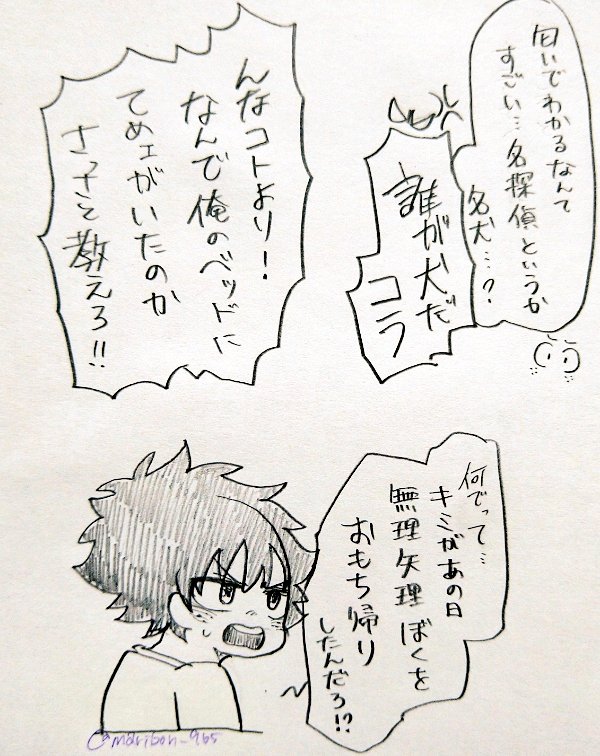 匂いでわかるなんて
すごい…名探偵というか
名犬…？
誰が犬だ
コラ
んなコトより！
なんで俺のベッドに
てめェがいたのか
さっさと教えろ!!
何でって…
キミがあの日
無理矢理ぼくを
おもち帰り
したんだろ!?
@maribon_965